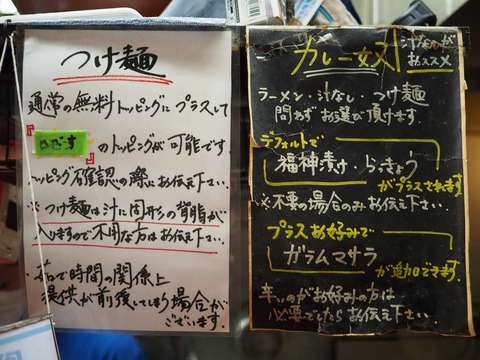 つけ麺
通常の無料トッピングにプラスして
『
』のトッピングが可能です
トッピング確認の際にお伝え下さい.
※つけ麺は汁に固形の背脂が
入りますので不用な方はお伝え下さい.
時間の関係上
提供が前後してしまう場合が
ございます.
カレー奴
汁なしが
おススメ
ラーメン・汁なし・つけ麺
問わずお選び頂けます
デフォルトで
福神漬け・らっきょう
がプラスされます
※不要の場合のみお伝え下さい.
プラスお好みで
ガラムマサラ
が追加できます.
辛いのがお好みの方は
必要でしたらお伝え下さい.